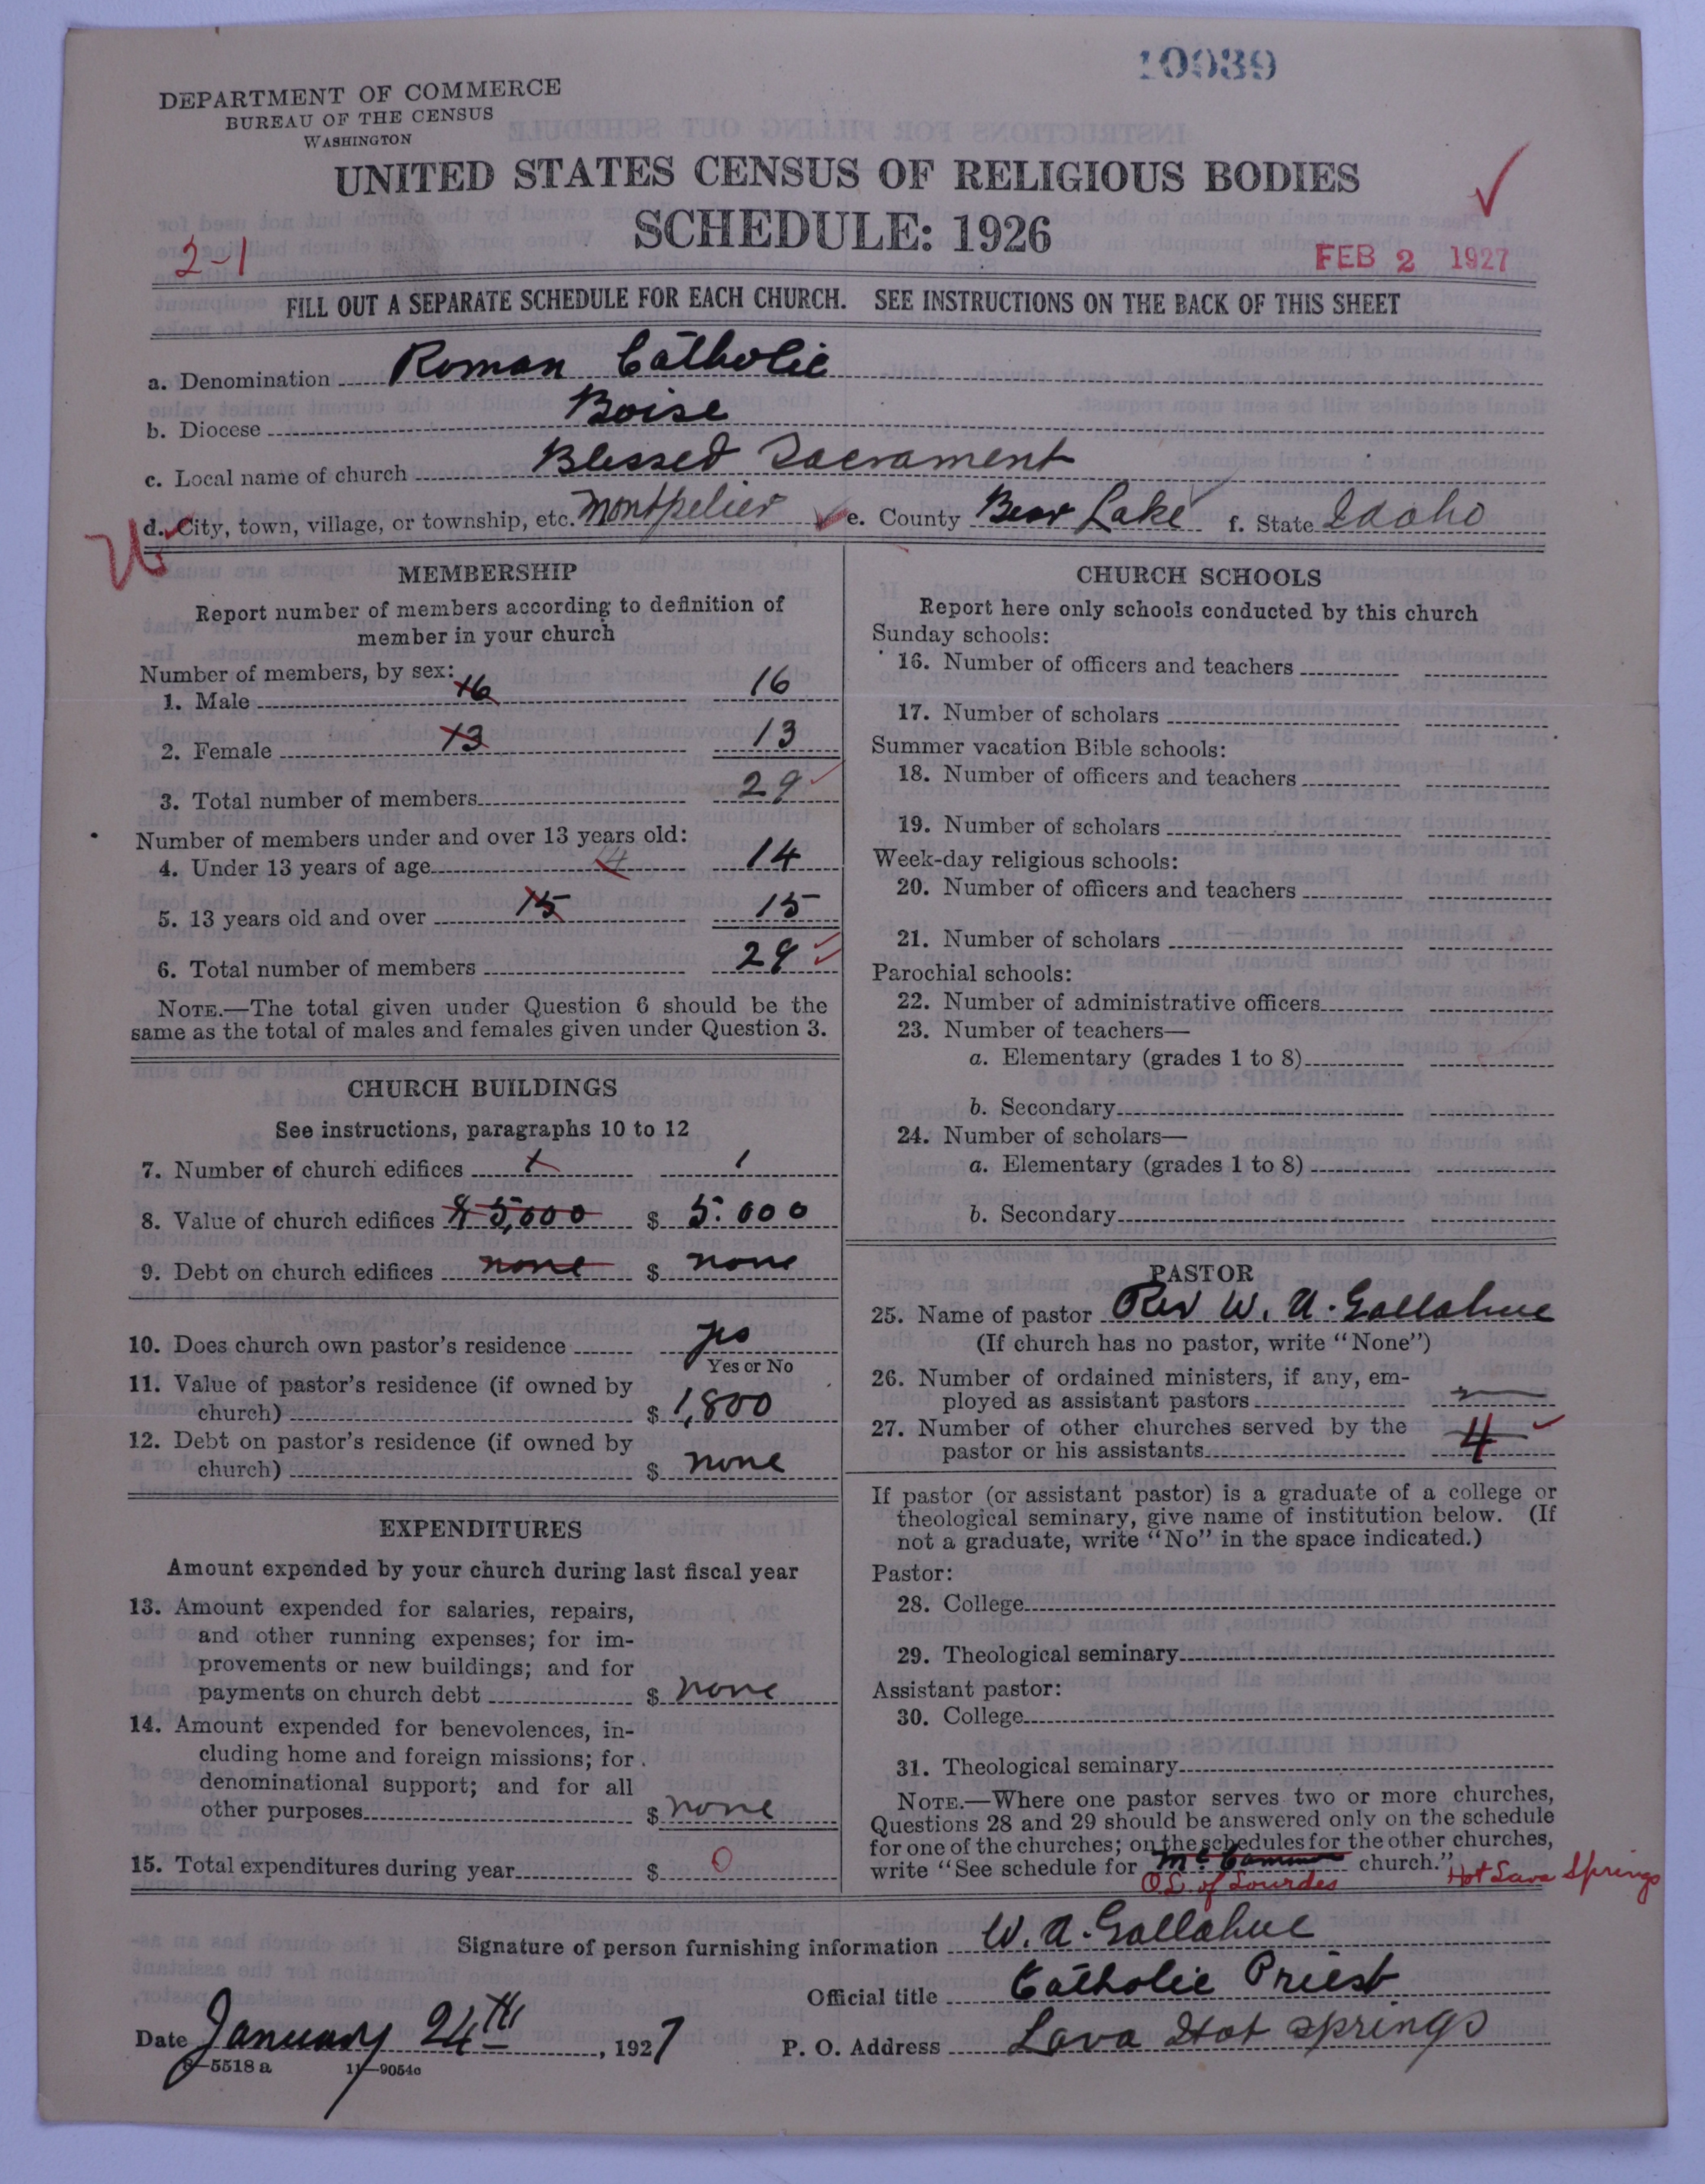 10039
DEPARTMENT OF COMMERCE
BUREAU OF THE CENSUS
WASHINGTON
UNITED STATES CENSUS OF RELIGIOUS BODIES
SCHEDULE: 1926
2-1
FEB 2 1927
FILL OUT A SEPARATE SCHEDULE FOR EACH CHURCH. SEE INSTRUCTIONS ON THE BACK OF THIS SHEET
a. Denomination Roman Catholic
b. Diocese Boise
c. Local name of church Blessed Sacrament
d. City, town, village, or township, etc. Montpelier e. County Bear Lake f. State Idaho
MEMBERSHIP
Report number of members according to definition of
member in your church
Number of members, by sex:
1. Male 16 16
2. Female 13 13
3. Total number of members 29
Number of members under and over 13 years old:
4. Under 13 years of age 14 14
5. 13 years old and over 15 15
6. Total number of members 29
NOTE.—The total given under Question 6 should be the
same as the total of males and females given under Question 3.
CHURCH BUILDINGS
See instructions, paragraphs 10 to 12
7. Number of church edifices 1 1
8. Value of church edifices $5,000 $ 5.000
9. Debt on church edifices none $ none
10. Does church own pastor's residence yes
Yes or No
11. Value of pastor's residence (if owned by
church) $ 1,800
12. Debt on pastor's residence (if owned by
church) $ none
EXPENDITURES
Amount expended by your church during last fiscal year
13. Amount expended for salaries, repairs,
and other running expenses; for im-
provements or new buildings; and for
payments on church debt $ none
14. Amount expended for benevolences, in-
cluding home and foreign missions; for
denominational support; and for all
other purposes $ none
15. Total expenditures during year $ 0
CHURCH SCHOOLS
Report here only schools conducted by this church
Sunday schools:
16. Number of officers and teachers
17. Number of scholars
Summer vacation Bible schools:
18. Number of officers and teachers
19. Number of scholars
Week-day religious schools:
20. Number of officers and teachers
21. Number of scholars
Parochial schools:
22. Number of administrative officers
23. Number of teachers—
a. Elementary (grades 1 to 8)
b. Secondary
24. Number of scholars—
a. Elementary (grades 1 to 8)
b. Secondary
PASTOR
25. Name of pastor Rev W. A. Gallahue
(If church has no pastor, write "None")
26. Number of ordained ministers, if any, em-
ployed as assistant pastors
27. Number of other churches served by the
pastor or his assistants 4
If pastor (or assistant pastor) is a graduate of a college or
theological seminary, give name of institution below. (If
not a graduate, write "No" in the space indicated.)
Pastor:
28. College
29. Theological seminary
Assistant pastor:
30. College
31. Theological seminary
NOTE.—Where one pastor serves two or more churches,
Questions 28 and 29 should be answered only on the schedule
for one of the churches; on the schedules for the other churches,
write "See schedule for church."
O.L. of Lourdes Hot Lava Springs
Signature of person furnishing information W. A. Gallahue
Official title Catholic Priest
Date January 24TH, 1927 P. O. Address Lava Hot Springs
8—5518 a 11—9054c